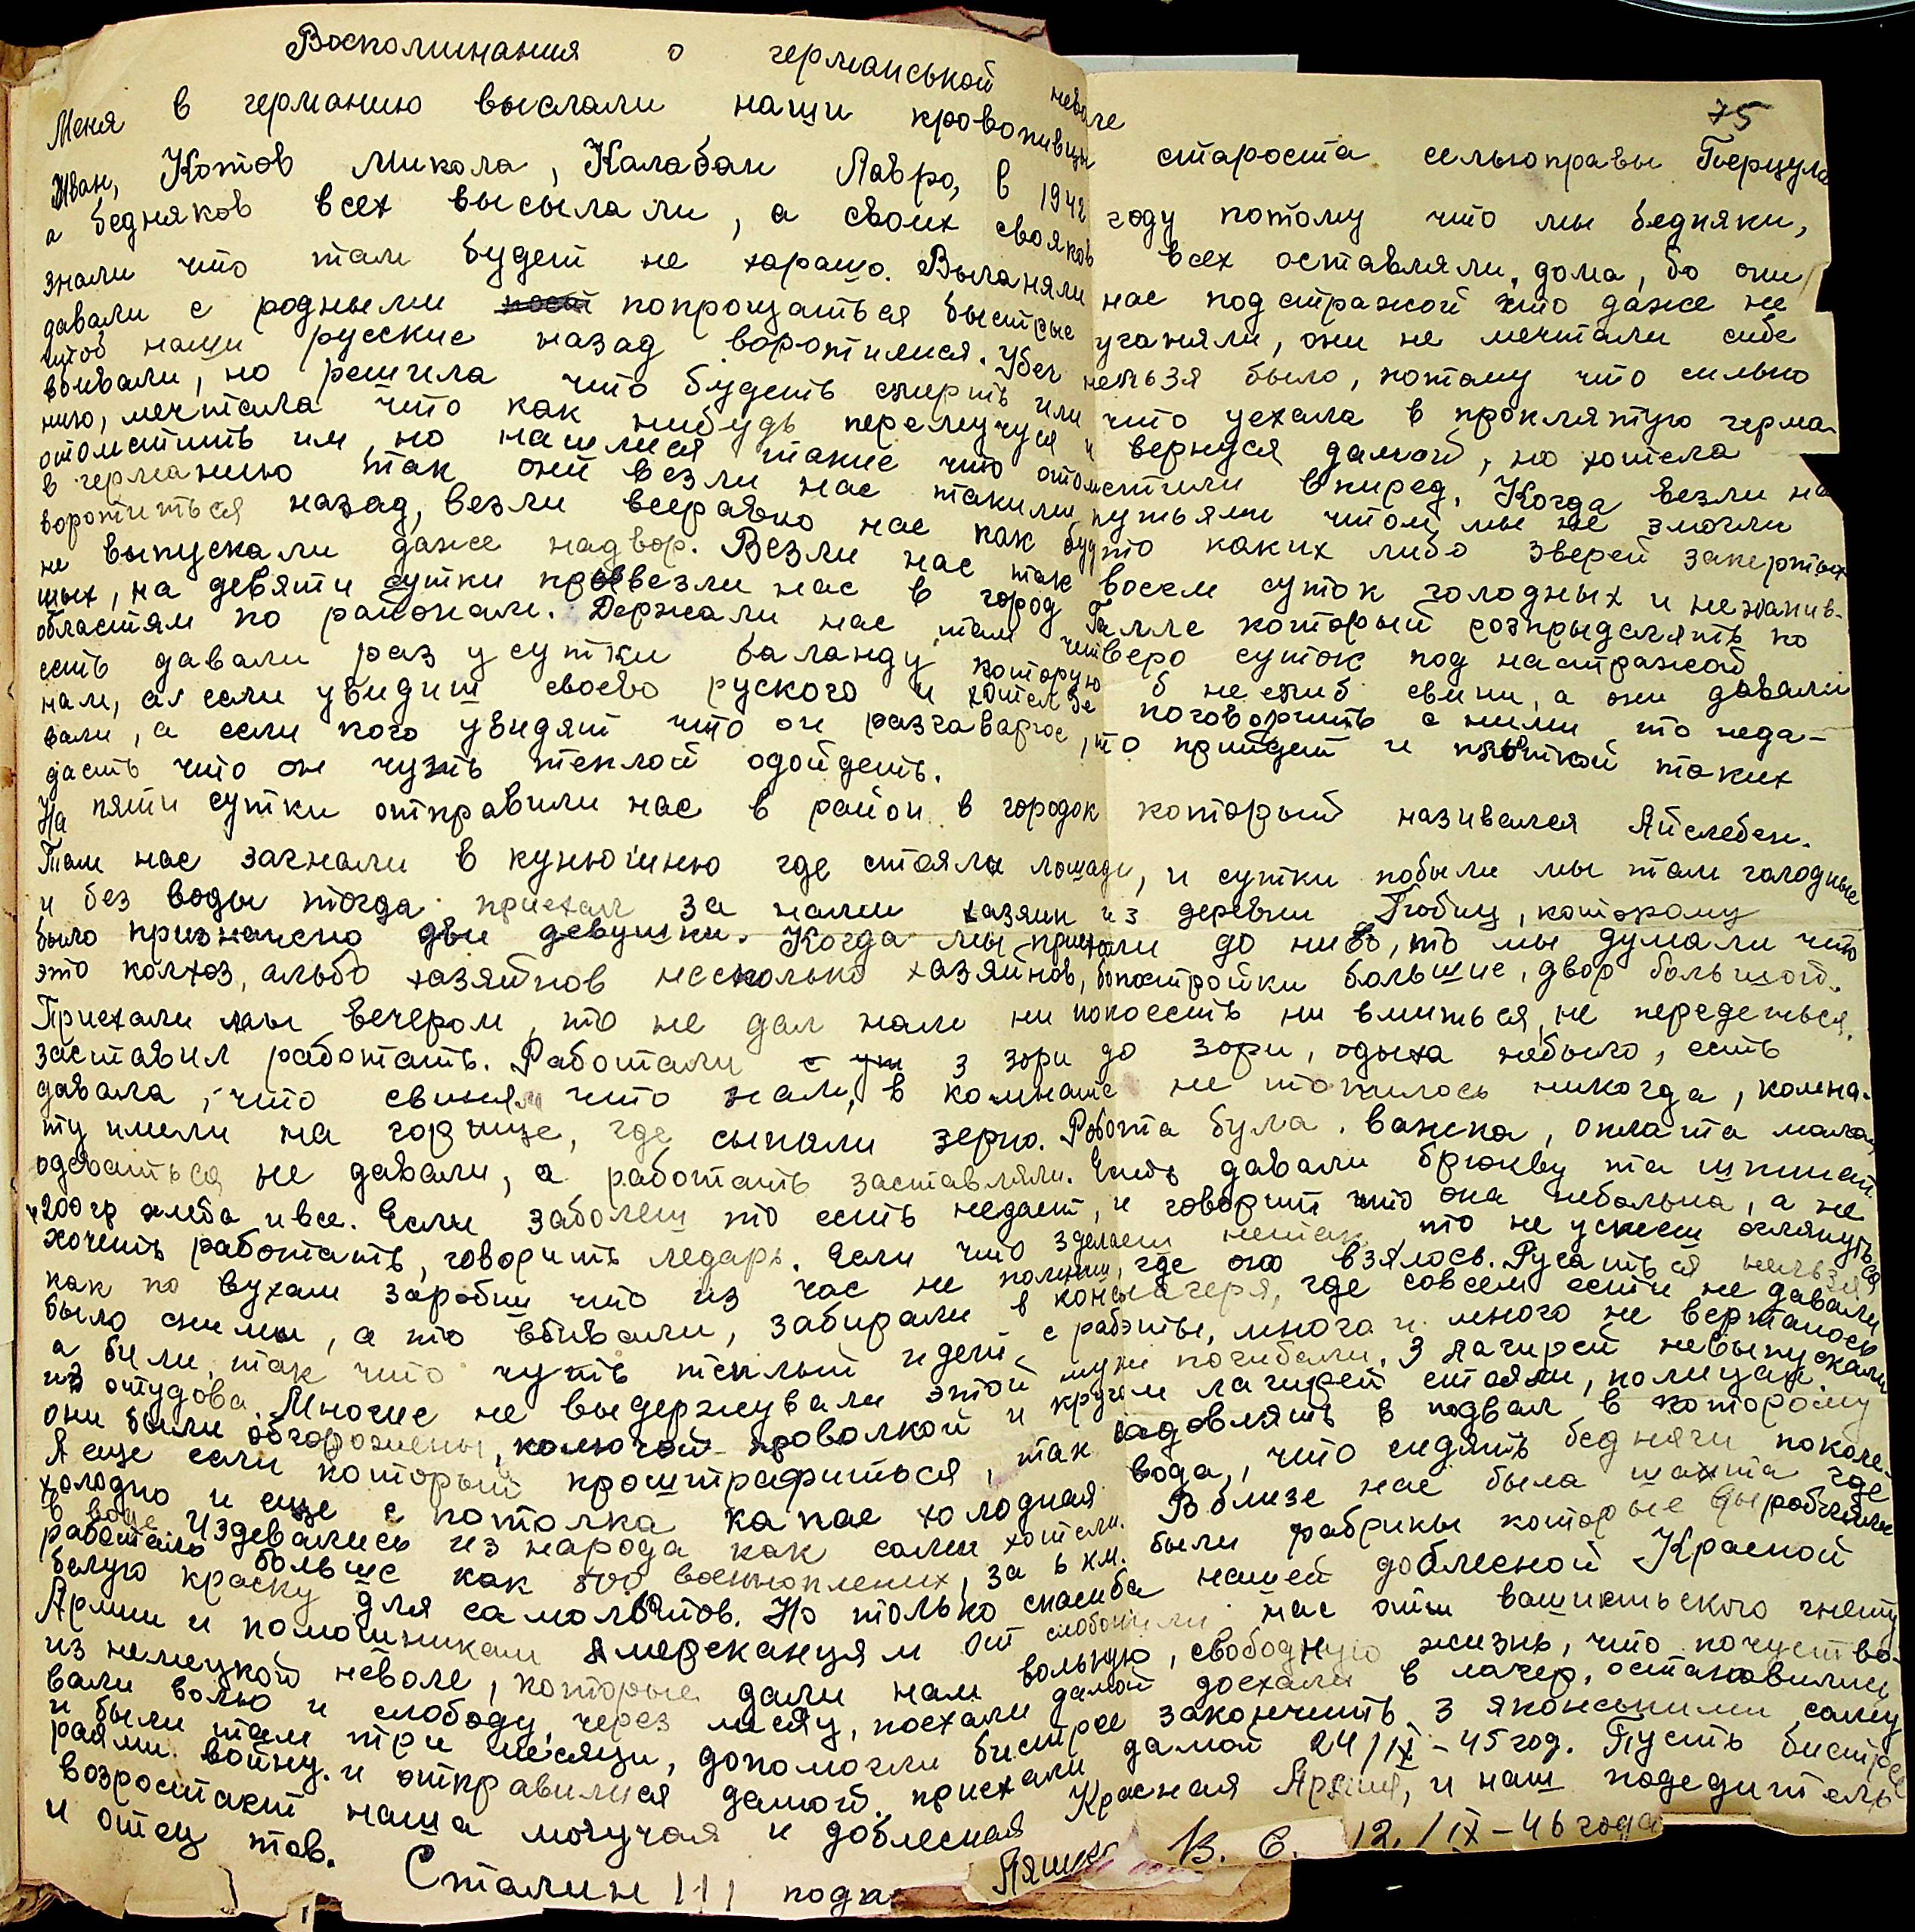 Воспоминания о германськой неволе
75
Меня в германию выслали наши кровопивцы староста сельюправы Перцула
Иван, Котов Микола, Калабан Лавро, в 1942 году потому что мы бедняки,
а бедняков всех высылали, а своих свояков всех оставляли, дома, бо они
знали что там будет не харашо. Выганяли нас под стражой что даже не
давали с родными попрощаться быстрые уганяли, они не мечтали себе
штоб наши русские назад воротилися. Убеч нельзя было, потому что сильно
вбивали, но решила что будеть смерть или что уехала в проклятую герма-
нию, мечтала что как нибудь перемучуся и вернуся дамой, но хотела
отомстить им, но нашлися такие что отомстили вперед. Когда везли на
в германию так они везли нас такими путьями чтом мы не змогли
воротиться назад, везли всеравно нас как будто каких либо зверей закертых
не выпускали даже надвор. Везли нас так восем суток голодных и не напив-
шых, на девяти сутки превезли нас в город Галле который розпрыделять по
областям по районам. Держали нас там четверо суток под настражой
есть давали раз у сутки баланду которую б не еьиб свини, а они давали
нам, а если увидит своево руского и хотел бе поговорить с ними то неда-
вали, а если кого увидят что он разгаваруе, то прийдет и плоткой таких
дасть что он чуть теплой одойдеть.
На пяти сутки отправили нас в район в городок который називался Айслебен.
Там нас загнали в кунюшню где стояли лошади, и сутки побыли мы там голодные
и без воды тогда приехал за нами хазяин из деревни Любиц, которому
было призначено две девушки. Когда мы приехали до нево, то мы думали что
это колхоз, альбо хазяйнов несколько хазяйнов, бо постройки больше, двор большой.
Приехали мы вечером, то не дал нам ни покоесть ни вмиться, не передеться,
заставил работать. Работали з зори до зори, одыха небыло, есть
давала, что свиням что нам, в комнате не топилось никогда, комна-
ту имели на горище, где сыпали зерно. Робота була важка, оплата мала,
одеваться не давали, а работать заставляли. Есть давали брюкву та шпинат
и 200 гр хлеба и все. Если заболеш то есть недает, и говорит что она небольна, а не
хочеть работать, говорить лєдарь. Если что зделаеш нетак, то не успеет оглянуться
как по вухам заробиш что из час не помниш, где оно взялось. Ругаться нельзя
было сними, а то вбивали, забирали в концлагеря, где совсем есть не давали
а били так что чуть теплый идеш с работы, много и много не верталось
из отудова. Многие не выдержували этой муки погибали. З лагирей невыпускали
они были обгорожены, колючой проволкой и кругом лагирей стояли, полицаи
А еще если который проштрафиться, так садовлять в подвал в котором
холодно и еще с потолка капае холодная вода, что сидять бедняги поколе-
в воде издевались из народа как сами хотели. Вблизе нас была шахта где
работало больше как 800 военнопленых, за 6 км. были фабрики которые выробляли
белую краску для самольотов. Но только спасиба нашей доблесной Красной
Армии и помошникам Амереканцям от слобонили нас от вашистьского гнету
из немецкой неволе, которые дали нам вольную, свободную жизнь, что почуство-
вали волю и слободу, через месяц, поехали дамой доехали в лагер, остановились
и были там три месяци, допомогли бистрее закончить з японськими саму
раями войну. и отправилися дамой. приехали дамой 24/IX-45 год. Пусть бистрее
возростает наша могучая и доблесная Красная Армия, и наш победитель
и отец тов. Сталин!!! В. С. 12./IX-46 года